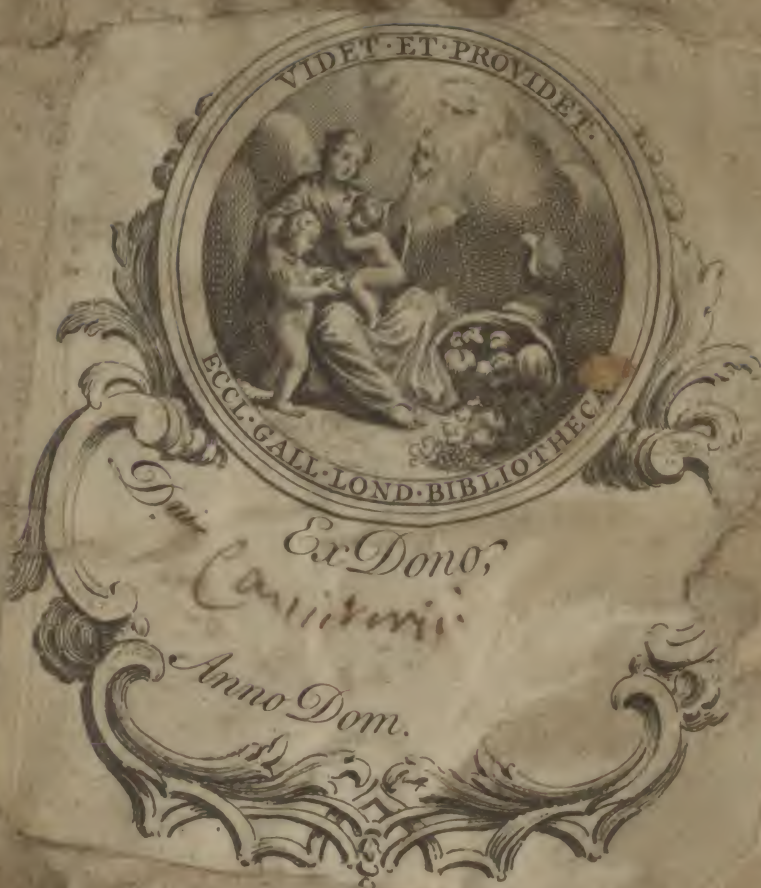 VIDET·ET·PROVIDET.
ECCL·GALL·LOND·BIBLIOTHECA
Ex Dono,
D.ni
Anno Dom.